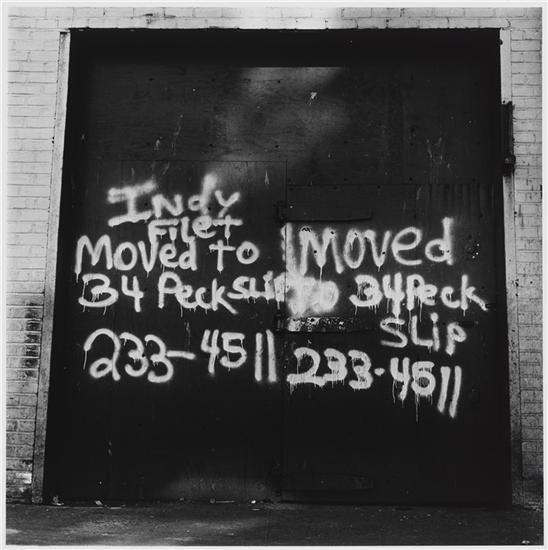 Indy
Filet
Moved to
34 Peck Slip
233-4511
Moved
to 34 Peck
Slip
233-4511